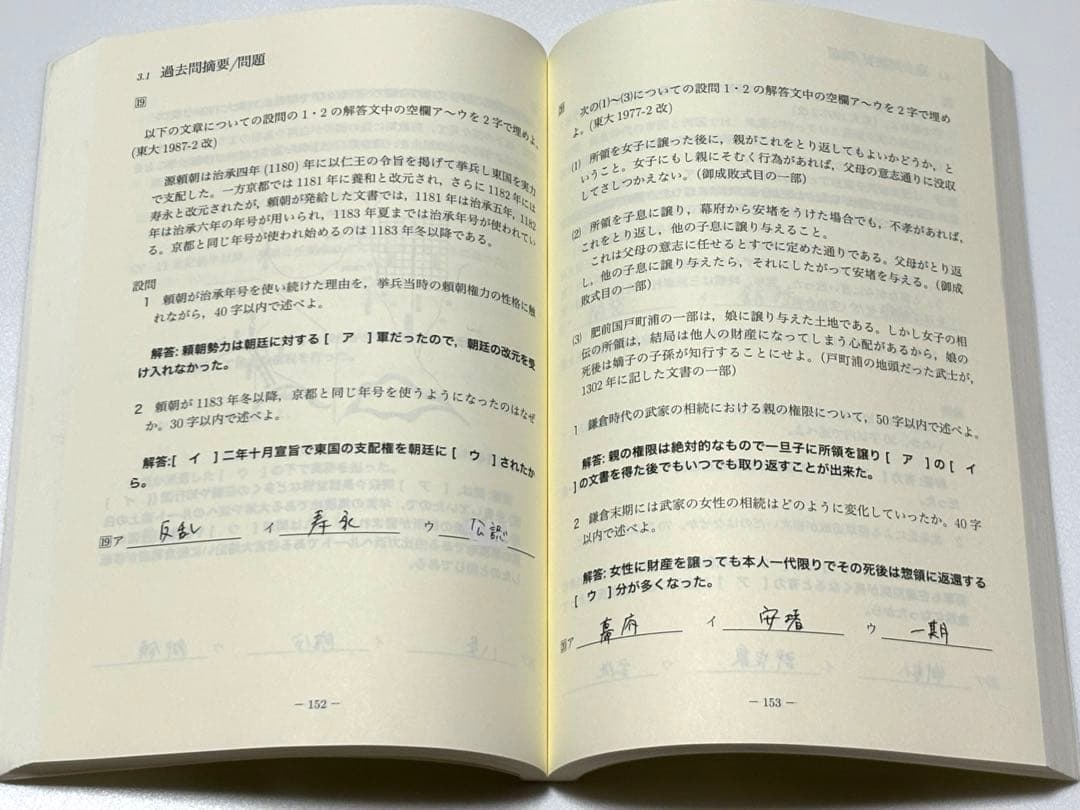 3.1 過去問摘要/問題
19
以下の文章についての設問の1・2の解答文中の空欄ア〜ウを2字で埋めよ。
(東大1987-2改)
源頼朝は治承四年(1180)年に以仁王の令旨を掲げて挙兵し東国を実力
で支配した。一方京都では1181年に養和と改元され，さらに1182年には
寿永と改元されたが，頼朝が発給した文書では，1181年は治承五年，1182
年は治承六年の年号が用いられ，1183年夏までは治承年号が使われてい
る。京都と同じ年号が使われ始めるのは1183年冬以降である。
設問
1 頼朝が治承年号を使い続けた理由を，挙兵当時の頼朝権力の性格に触
れながら，40字以内で述べよ。
解答: 頼朝勢力は朝廷に対する[ ア ]軍だったので，朝廷の改元を受
け入れなかった。
2 頼朝が1183年冬以降，京都と同じ年号を使うようになったのはなぜ
か。30字以内で述べよ。
解答:[ イ ]二年十月宣旨で東国の支配権を朝廷に[ ウ ]されたか
ら。
19 ア 反乱 イ 寿永 ウ 公認
― 152 ―
20
次の(1)〜(3)についての設問1・2の解答文中の空欄ア〜ウを2字で埋め
よ。(東大1977-2改)
(1) 所領を女子に譲った後に，親がこれをとり返してもよいかどうか，と
いうこと。女子にもし親にそむく行為があれば，父母の意志通りに没収
してさしつかえない。(御成敗式目の一部)
(2) 所領を子息に譲り，幕府から安堵をうけた場合でも，不孝があれば，
これをとり返し，他の子息に譲り与えること。
これは父母の意志に任せるとすでに定めた通りである。父母がとり返
し，他の子息に譲り与えたら，それにしたがって安堵を与える。(御成
敗式目の一部)
(3) 肥前国戸町浦の一部は，娘に譲り与えた土地である。しかし女子の相
伝の所領は，結局は他人の財産になってしまう心配があるから，娘の
死後は嫡子の子孫が知行することにせよ。(戸町浦の地頭だった武士が，
1302年に記した文書の一部)
1 鎌倉時代の武家の相続における親の権限について，50字以内で述べよ。
解答: 親の権限は絶対的なもので一旦子に所領を譲り[ ア ]の[ イ
]の文書を得た後でもいつでも取り返すことが出来た。
2 鎌倉末期には武家の女性の相続はどのように変化していったか。40字
以内で述べよ。
解答: 女性に財産を譲っても本人一代限りでその死後は惣領に返還する
[ ウ ]分が多くなった。
20 ア 幕府 イ 安堵 ウ 一期
― 153 ―